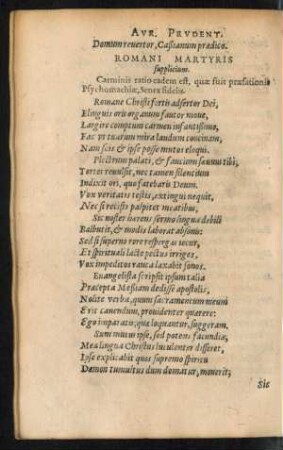 AVR. PRVDENT.
Domum reuertor, Caßianum prædico.
ROMANI MARTYRIS
supplicium.
Carminis ratio eadem est, quæ fuit præfationis
Psychomachiæ, Senex fidelis.
Romane Christi fortis adsertor Dei,
Elinguis oris organum fautor moue,
Largire comptum carmen infantissimo,
Fac vt tuarum mira laudum concinam,
Nam scis & ipse posse mutos eloqui.
Plectrum palati, & faucium sæuus tibi,
Tortor reuulsit, nec tamen silentium
Indixit ori, quo fatebaris Deum.
Vox veritatis testis, extingui nequit,
Nec si recisis palpitet meatibus,
Sic noster hærens sermo lingua debili
Balbutit, & modis laborat absonis:
Sed si superno rore respergas iecur,
Et spirituali lacte pectus irriges,
Vox impeditos rauca laxabit sonos.
Euangelista scripsit ipsum talia
Præcepta Meßiam dedisse apostolis,
Nolite verba, quum sacramentum meum
Erit canendum, prouidenter quærere:
Ego imparatis, quæ loquantur, suggeram.
Sum mutus ipse, sed potens facundiæ,
Mea lingua Christus luculenter disseret,
Ipse explicabit quos supremo spiritu
Dæmon tumultus dum domatur, mouerit;
Sic